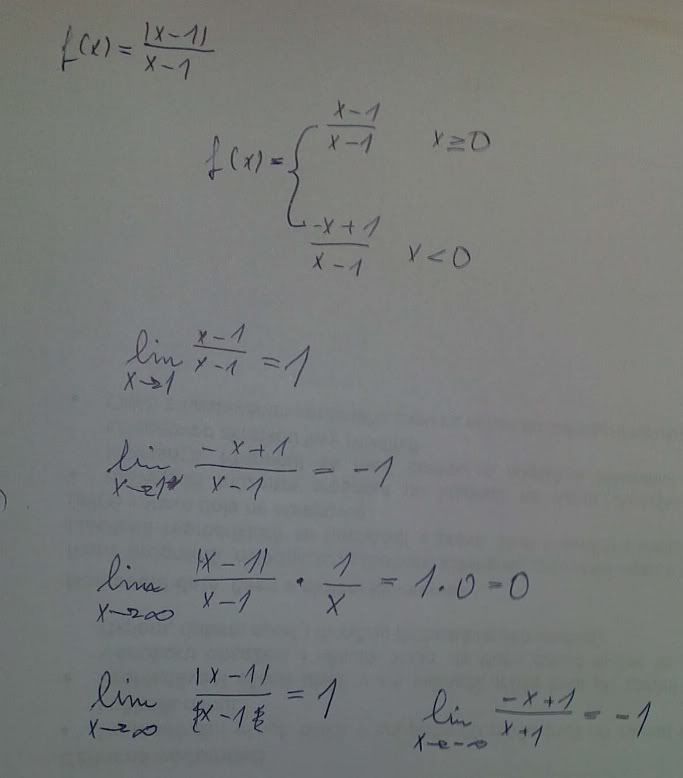 f(x) = |x-1| / x-1
f(x) = { x-1 / x-1 x ≥ 0
-x+1 / x-1 x < 0
lim x→1 x-1 / x-1 = 1
lim x→1 -x+1 / x-1 = -1
lim x→∞ |x-1| / x-1 · 1 / x = 1·0 = 0
lim x→∞ |x-1| / x-1 = 1 lim x→-∞ -x+1 / x+1 = -1